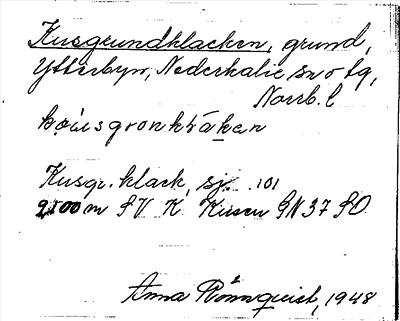 Kusgrundklacken, grund,
Ytterbyn, Nederkalix sn o tg,
Norrb. l
Kusgr. klack, sj. 101
2500 m SV K. Kusen GN 37 SO
Anna Rönnquist, 1948